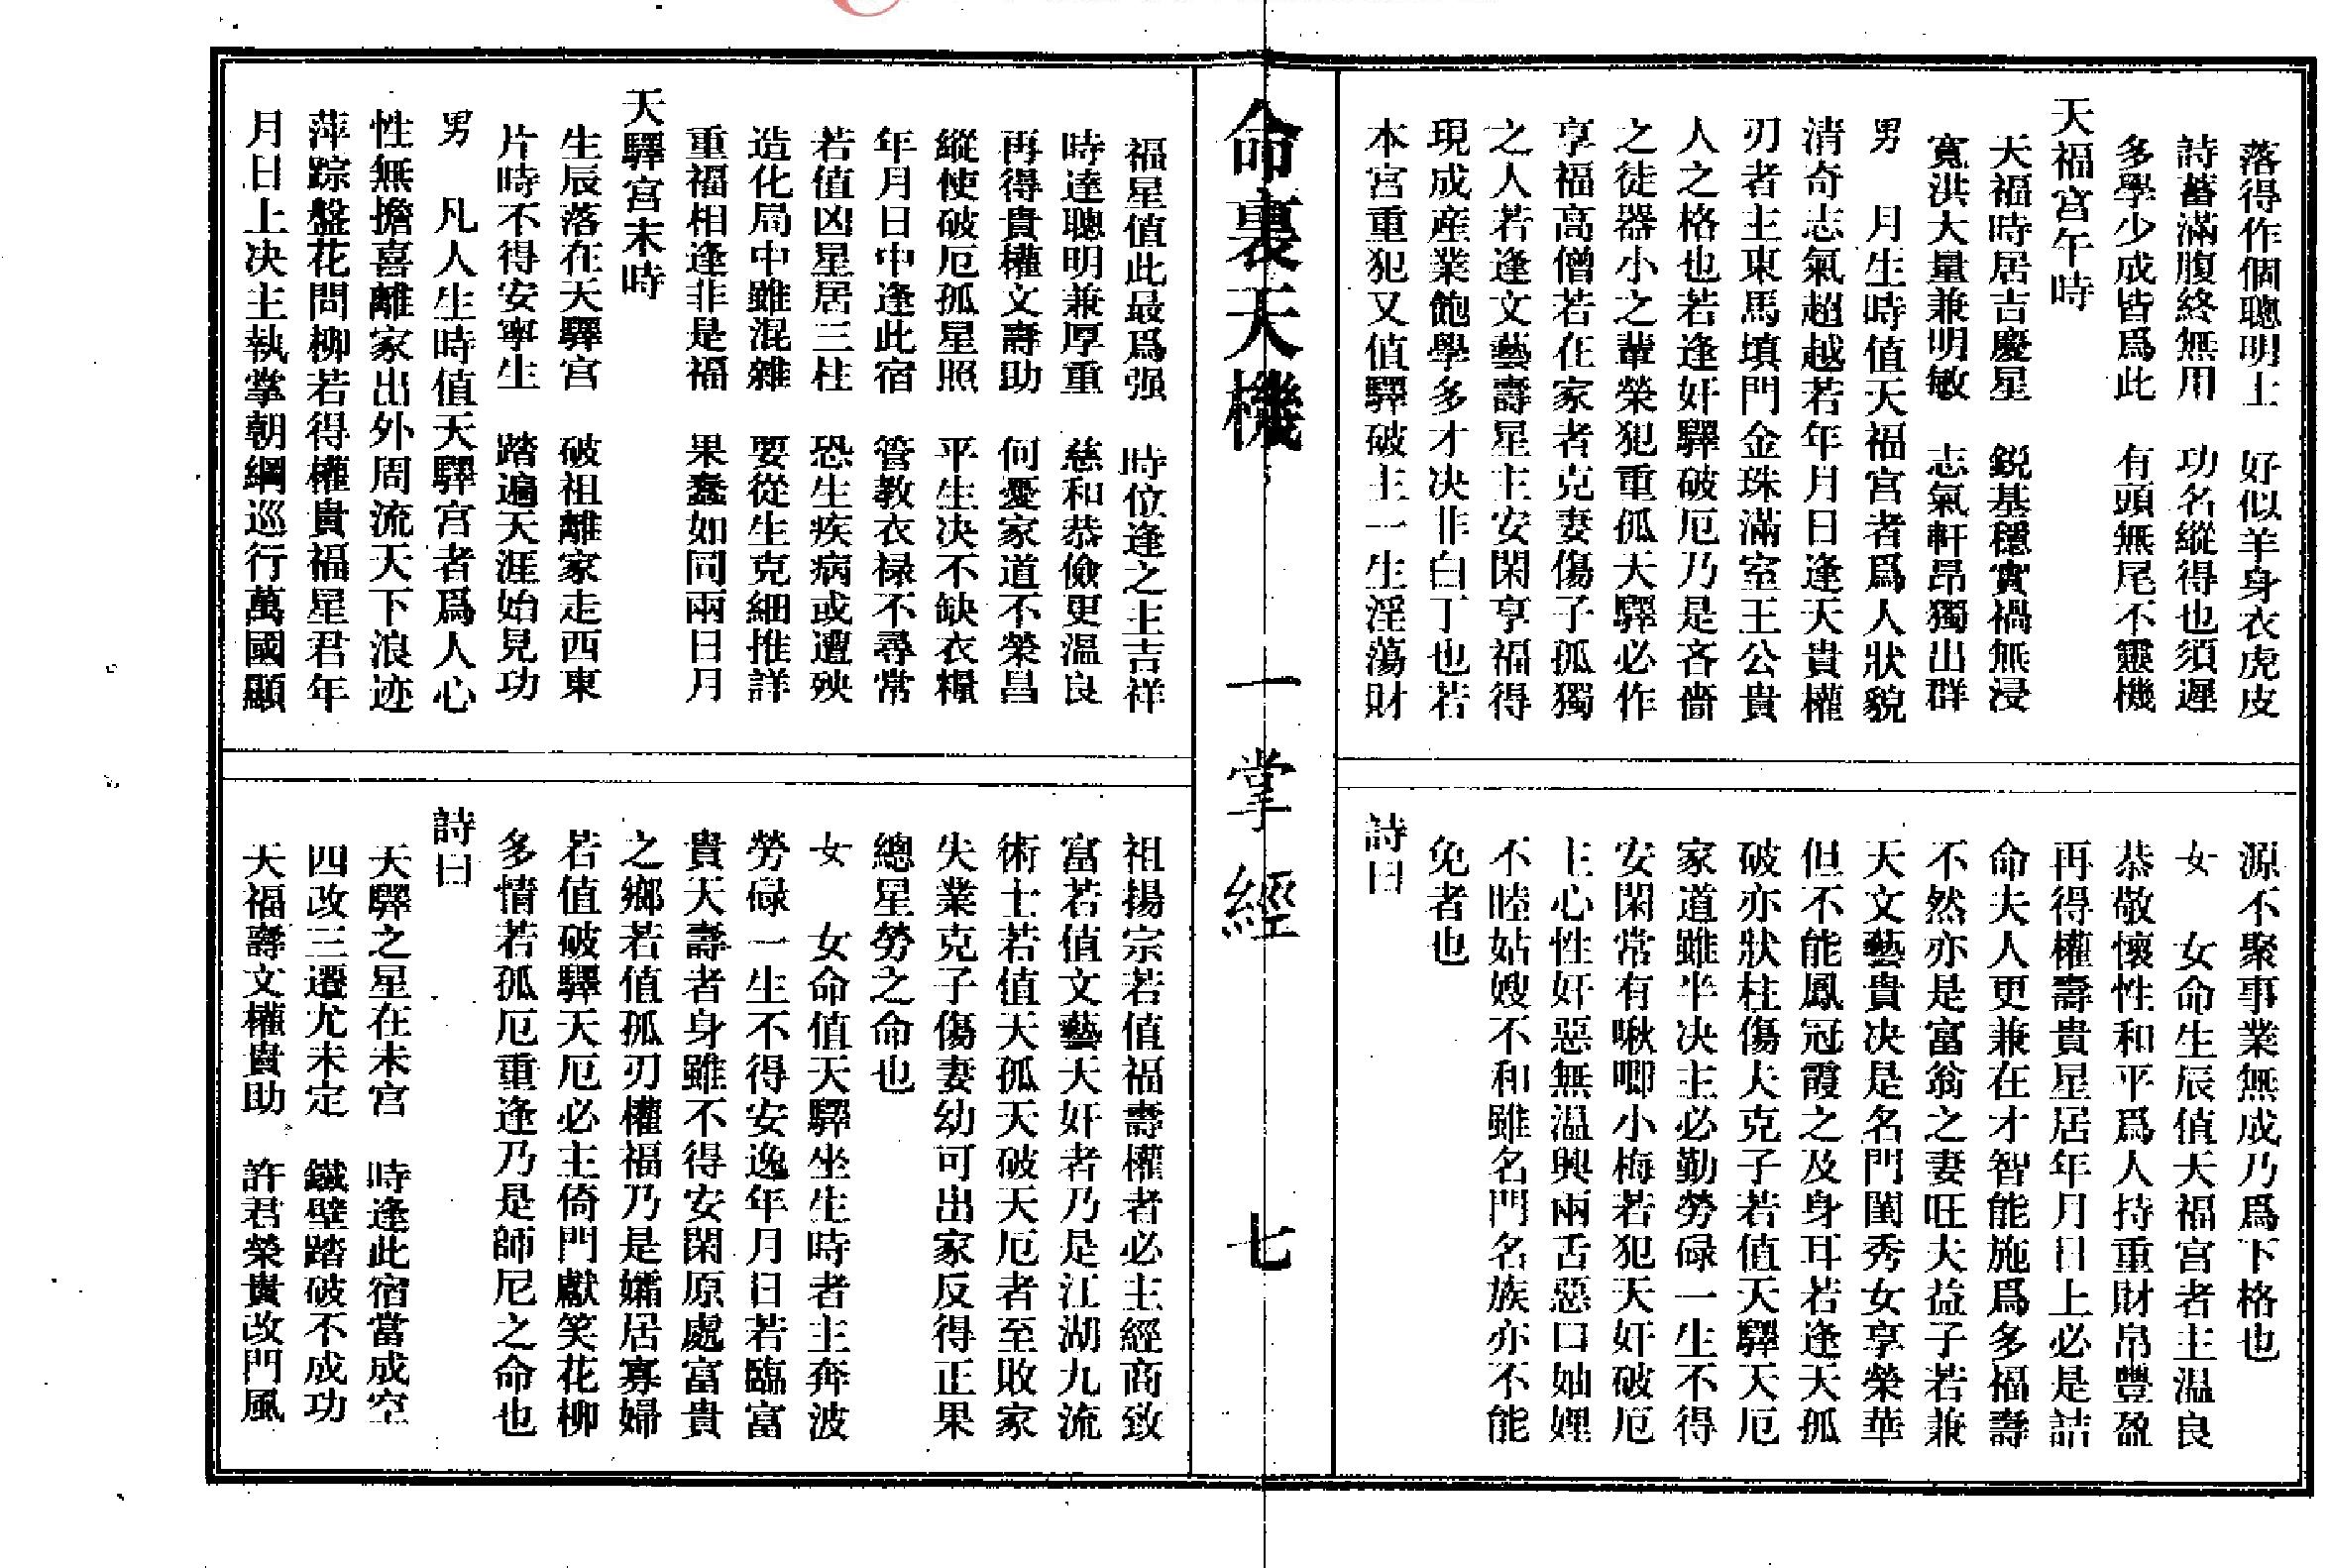 落得作個聰明士　好似羊身衣虎皮
詩蓄滿腹終無用　功名縱得也須遲
多學少成皆爲此　有頭無尾不靈機
天福宮午時
天福時居吉慶星　鋭基穩實禍無浸
寬洪大量兼明敏　志氣軒昂獨出群
男　月生時值天福宮者爲人狀貌
清奇志氣超越若年月日逢天貴權
刃者主東馬填門金珠滿室王公貴
人之格也若逢奸驛破厄乃是吝嗇
之徒器小之輩榮犯重孤天驛必作
享福高僧若在家者克妻傷子孤獨
之人若逢文藝壽星主安閑享福得
現成産業飽學多才决非白丁也若
本宮重犯又值驛破主一生淫蕩財
源不聚事業無成乃爲下格也
女　女命生辰值天福宮者主温良
恭敬懷性和平爲人持重財帛豐盈
再得權壽貴星居年月日上必是誥
命夫人更兼在才智能施爲多福壽
不然亦是富翁之妻旺夫益子若兼
天文藝貴决是名門閨秀女享榮華
但不能鳳冠霞之及身耳若逢天孤
破亦狀柱傷夫克子若值天驛天厄
家道雖半决主必勤勞碌一生不得
安閑常有啾唧小梅若犯天奸破厄
主心性奸惡無温興兩舌惡口妯娌
不睦姑嫂不和雖名門名族亦不能
免者也
詩曰
命裏天機　一掌經　七
福星值此最爲强　時位逢之主吉祥
時逹聰明兼厚重　慈和恭儉更温良
再得貴權文壽助　何憂家道不榮昌
縱使破厄孤星照　平生决不缺衣糧
年月日中逢此宿　管教衣禄不尋常
若值凶星居三柱　恐生疾病或遭殃
造化局中雖混雜　要從生克細推詳
重福相逢非是福　果蠢如同兩日月
天驛宮末時
生辰落在天驛宮　破祖離家走西東
片時不得安寧生　踏遍天涯始見功
男　凡人生時值天驛宮者爲人心
性無擔喜離家出外周流天下浪迹
萍踪盤花問柳若得權貴福星君年
月日上决主執掌朝綱巡行萬國顯
祖揚宗若值福壽權者必主經商致
富若值文藝天奸者乃是江湖九流
術士若值天孤天破天厄者至敗家
失業克子傷妻幼可出家反得正果
總星勞之命也
女　女命值天驛坐生時者主奔波
勞碌一生不得安逸年月日若臨富
貴天壽者身雖不得安閑原處富貴
之鄉若值孤刃權福乃是孀居寡婦
若值破驛天厄必主倚門獻笑花柳
多情若孤厄重逢乃是師尼之命也
詩曰
天驛之星在未宮　時逢此宿當成空
四改三遷尤未定　鐵壁踏破不成功
天福壽文權貴助　許君榮貴改門風